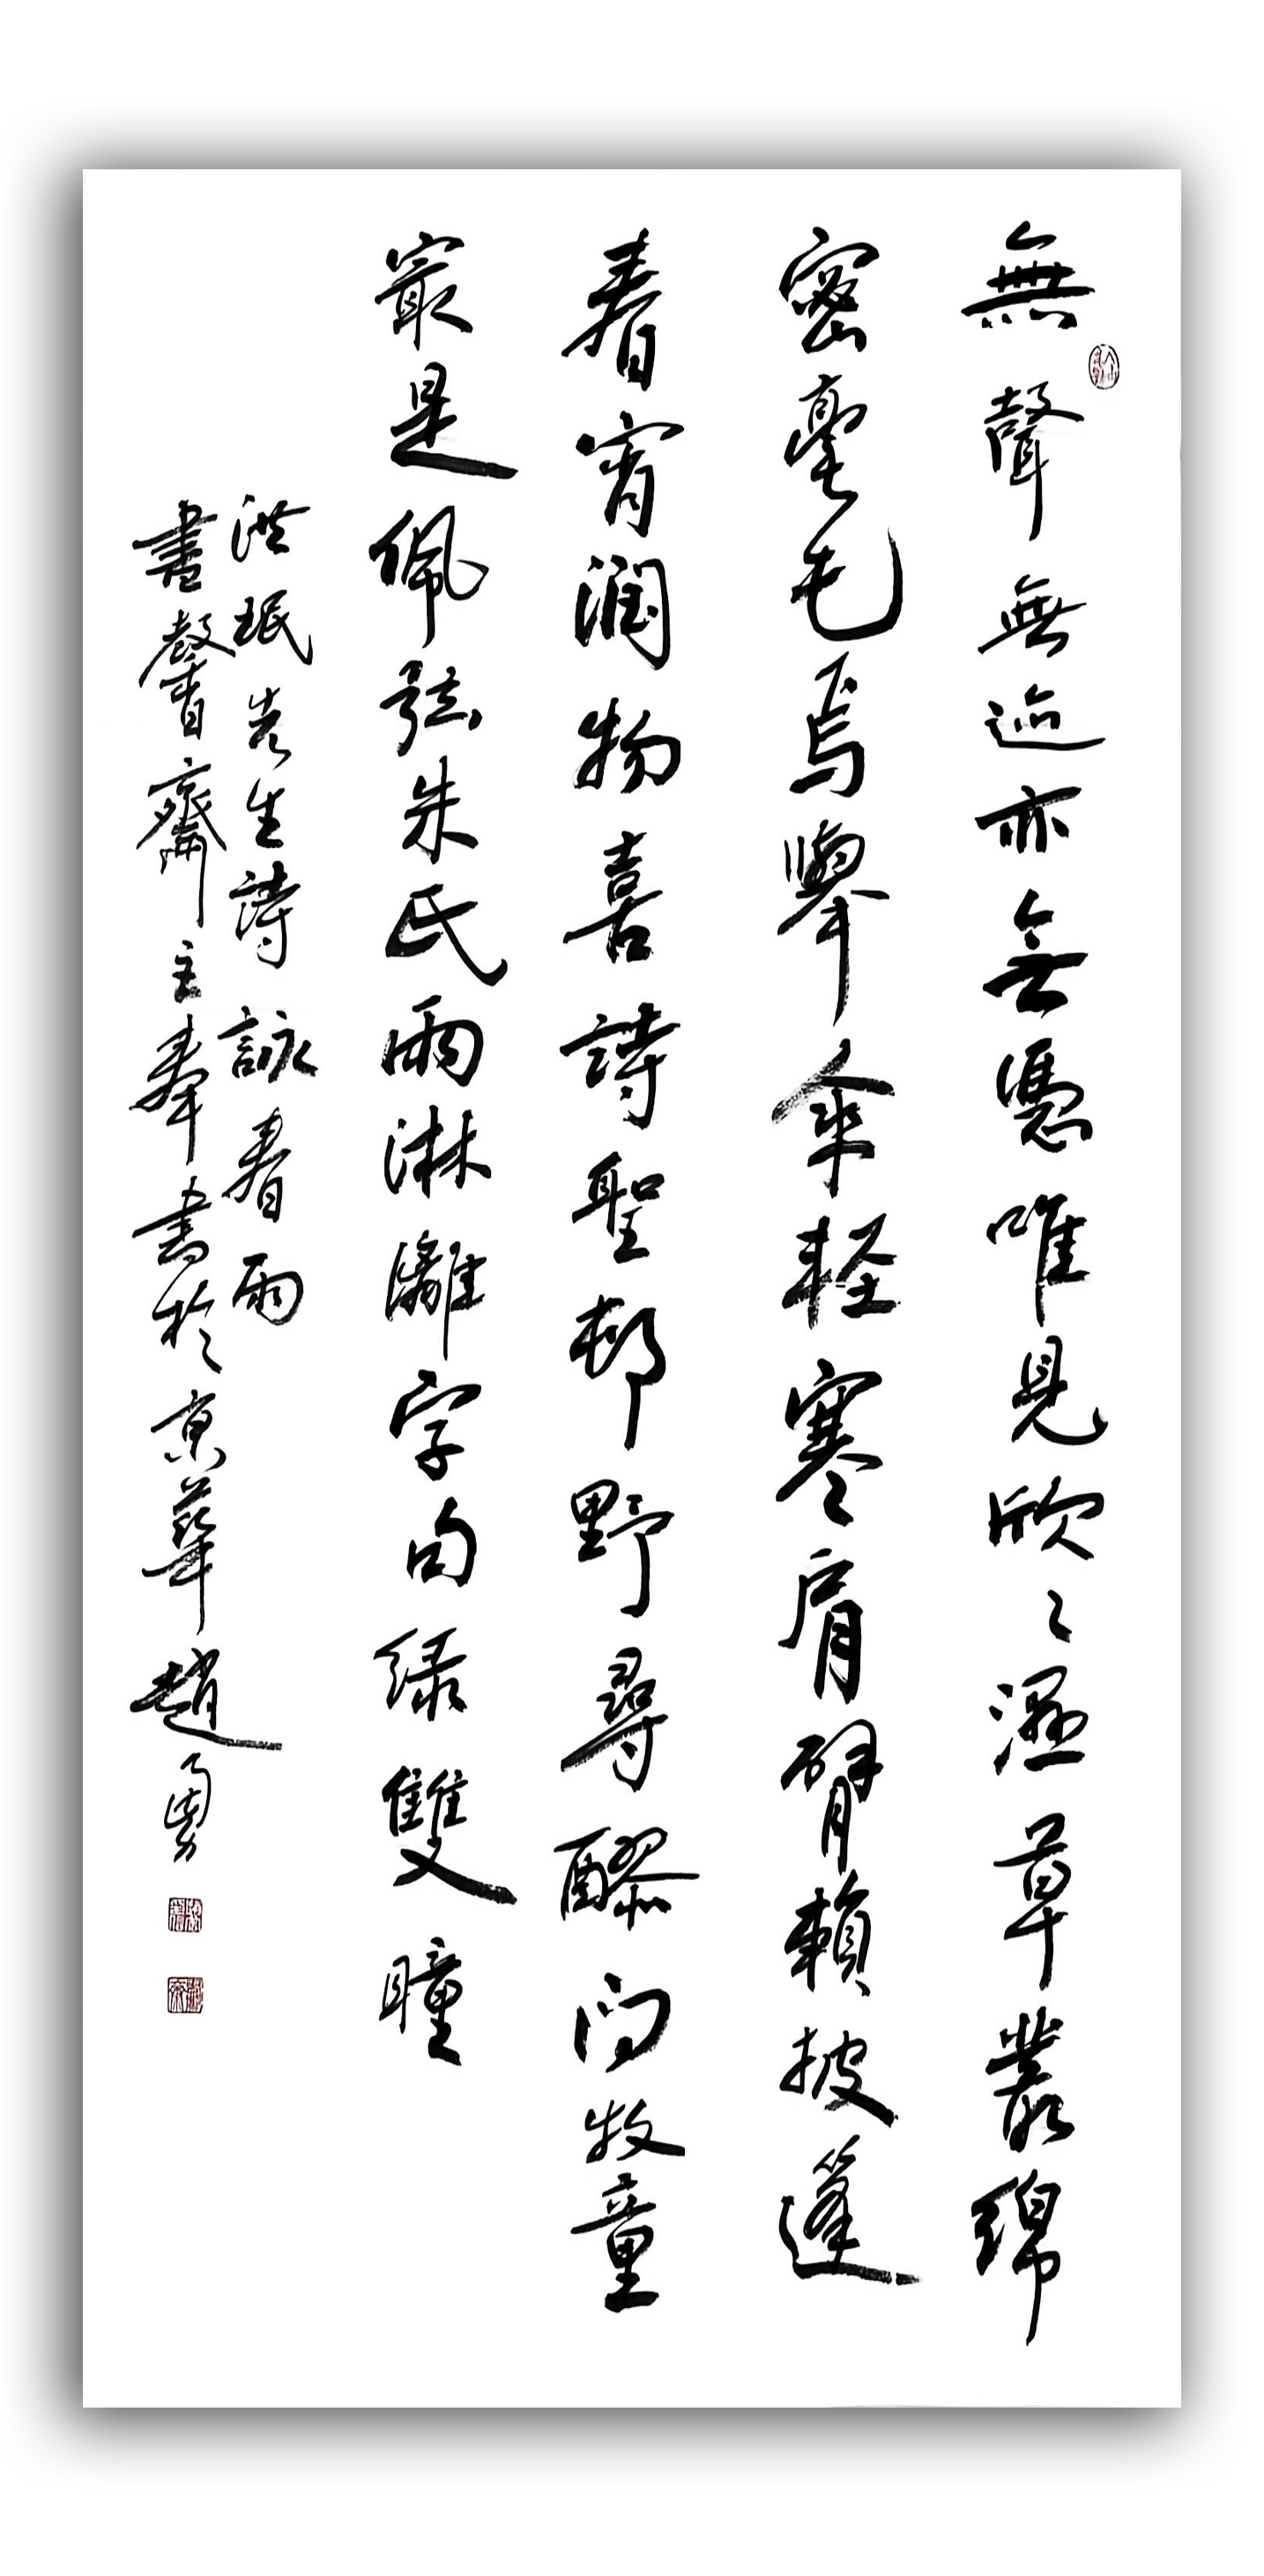 無聲無迹亦無憑唯見欣〻濕草叢綿
密毫毛焉舉傘輕寒肩臂賴披蓬
春宵潤物喜詩聖邨野尋醪问牧童
最是佩弦朱氏雨淋漓字句綠雙瞳
洪珉先生詩詠春雨
書馨齋主奉書於京華趙勇